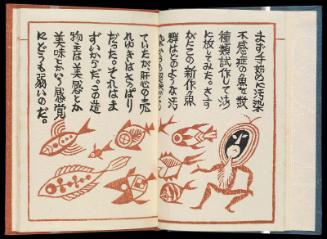 まず手始めに汚染
不感症の魚を数
種類試作して汚
に放してみた。さす
がたこの新作の魚
群はどのような汚
ていたが、肝心の売
れゆきはさっぱり
だった。それはま
ずいからだ。この造
物主は美感とか
美味とかいう感覚
にとても弱いのだ。